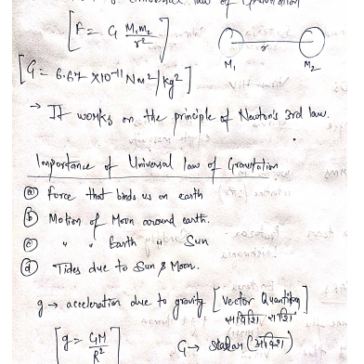 Universal law of Gravitation
[F = G M₁M₂/r²]
r
M₁ M₂
[G = 6.67 × 10⁻¹¹ Nm²/kg²]
→ It works on the principle of Newton's 3rd law.
Importance of Universal law of Gravitation
ⓐ Force that binds us on earth
ⓑ Motion of Moon around earth.
ⓒ " " Earth " Sun
ⓓ Tides due to Sun & Moon.
g → acceleration due to gravity [Vector Quantity]
[g = GM/R²] G → scalar (अदिश)